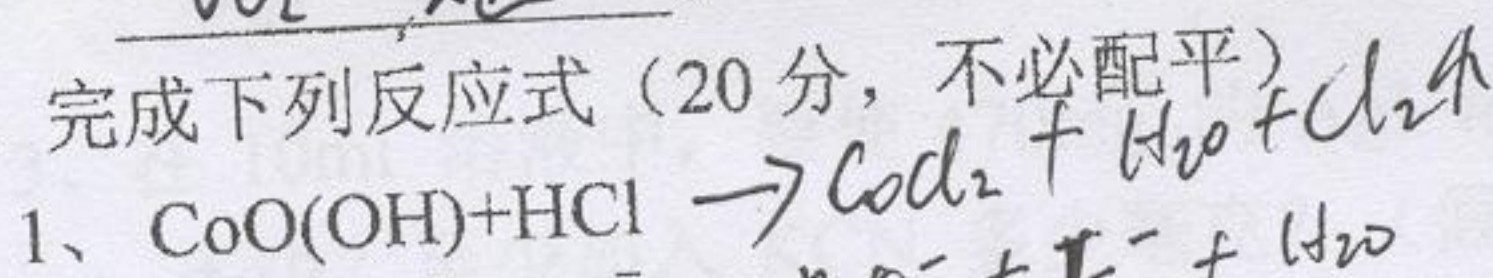 完成下列反应式（20 分，不必配平）
1、CoO(OH)+HCl → CoCl₂ + H₂O + Cl₂↑
+ I⁻ + H₂O